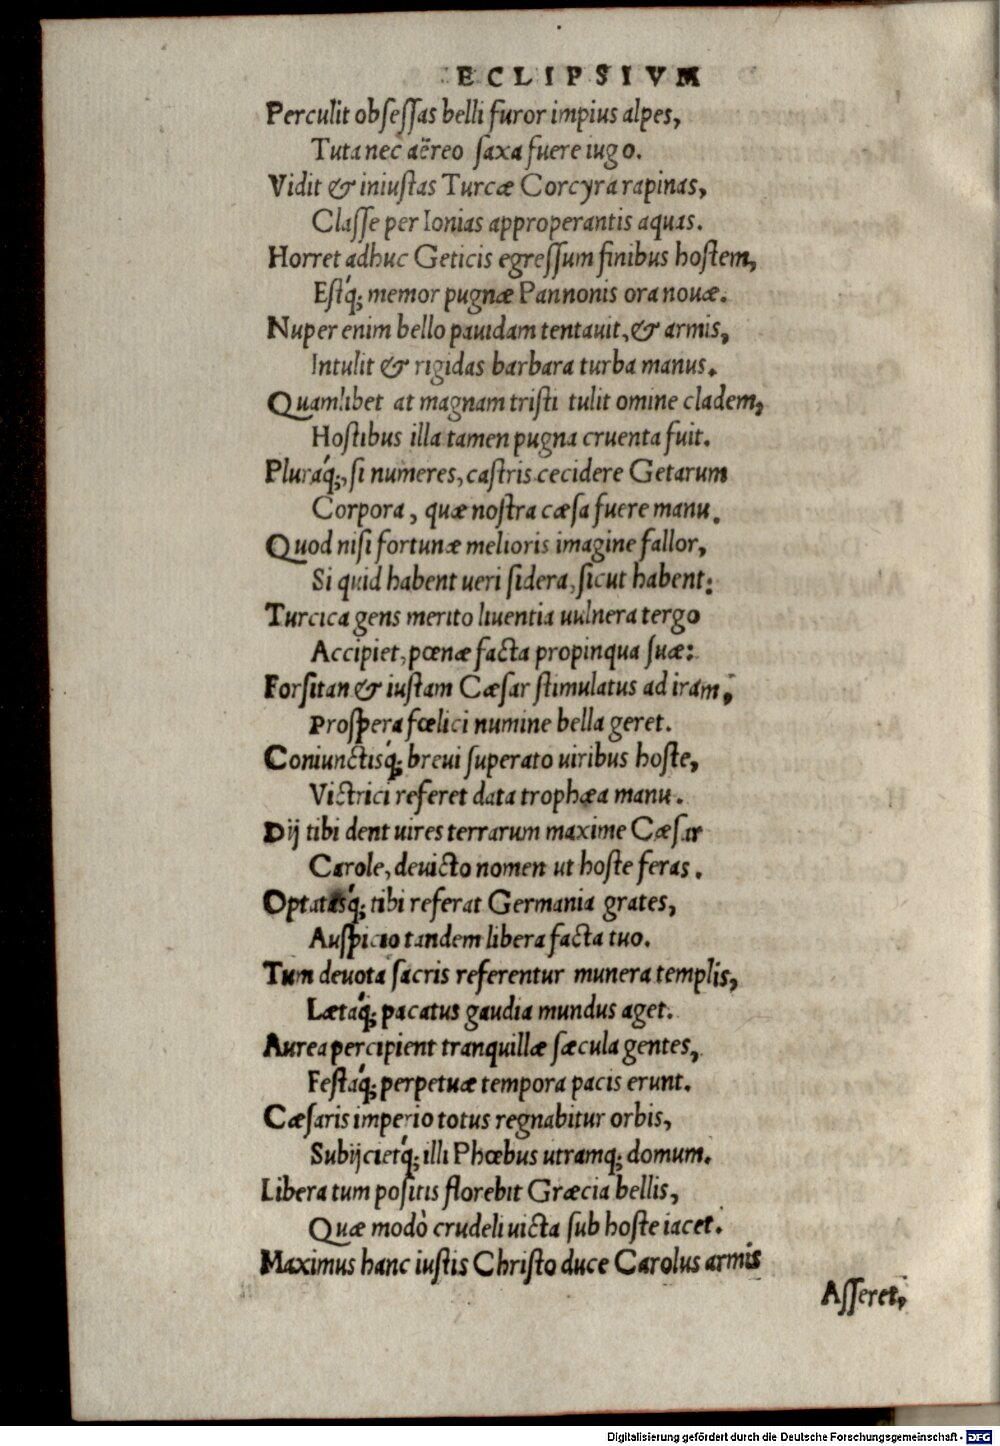 ECLIPSIVM
Perculit obſeſſas belli furor impius alpes,
Tuta nec aëreo ſaxa fuere iugo.
Vidit & iniuſtas Turcæ Corcyra rapinas,
Claſſe per Ionias approperantis aquas.
Horret adhuc Geticis egreſſum finibus hoſtem,
Eſtq́; memor pugnæ Pannonis ora nouæ.
Nuper enim bello pauidam tentauit, & armis,
Intulit & rigidas barbara turba manus.
Quamlibet at magnam triſti tulit omine cladem,
Hoſtibus illa tamen pugna cruenta fuit.
Pluraq́;, ſi numeres, caſtris cecidere Getarum
Corpora, quæ noſtra cæſa fuere manu.
Quod niſi fortunæ melioris imagine fallor,
Si quid habent ueri ſidera, ſicut habent:
Turcica gens merito liuentia uulnera tergo
Accipiet, pœnæ facta propinqua ſuæ:
Forſitan & iuſtam Cæſar ſtimulatus ad iram,
Proſpera fœlici numine bella geret.
Coniunctisq́; breui ſuperato uiribus hoſte,
Victrici referet data trophæa manu.
Dij tibi dent uires terrarum maxime Cæſar
Carole, deuicto nomen ut hoſte feras.
Optatasq́; tibi referat Germania grates,
Auſpicio tandem libera facta tuo.
Tum deuota ſacris referentur munera templis,
Lætaq́; pacatus gaudia mundus aget.
Aurea percipient tranquillæ ſæcula gentes,
Feſtaq́; perpetuæ tempora pacis erunt.
Cæſaris imperio totus regnabitur orbis,
Subijcietq́; illi Phœbus utramq; domum.
Libera tum poſitis florebit Græcia bellis,
Quæ modò crudeli uicta ſub hoſte iacet.
Maximus hanc iuſtis Chriſto duce Carolus armis
Aſſeret,
Digitalisierung gefördert durch die Deutsche Forschungsgemeinschaft - DFG